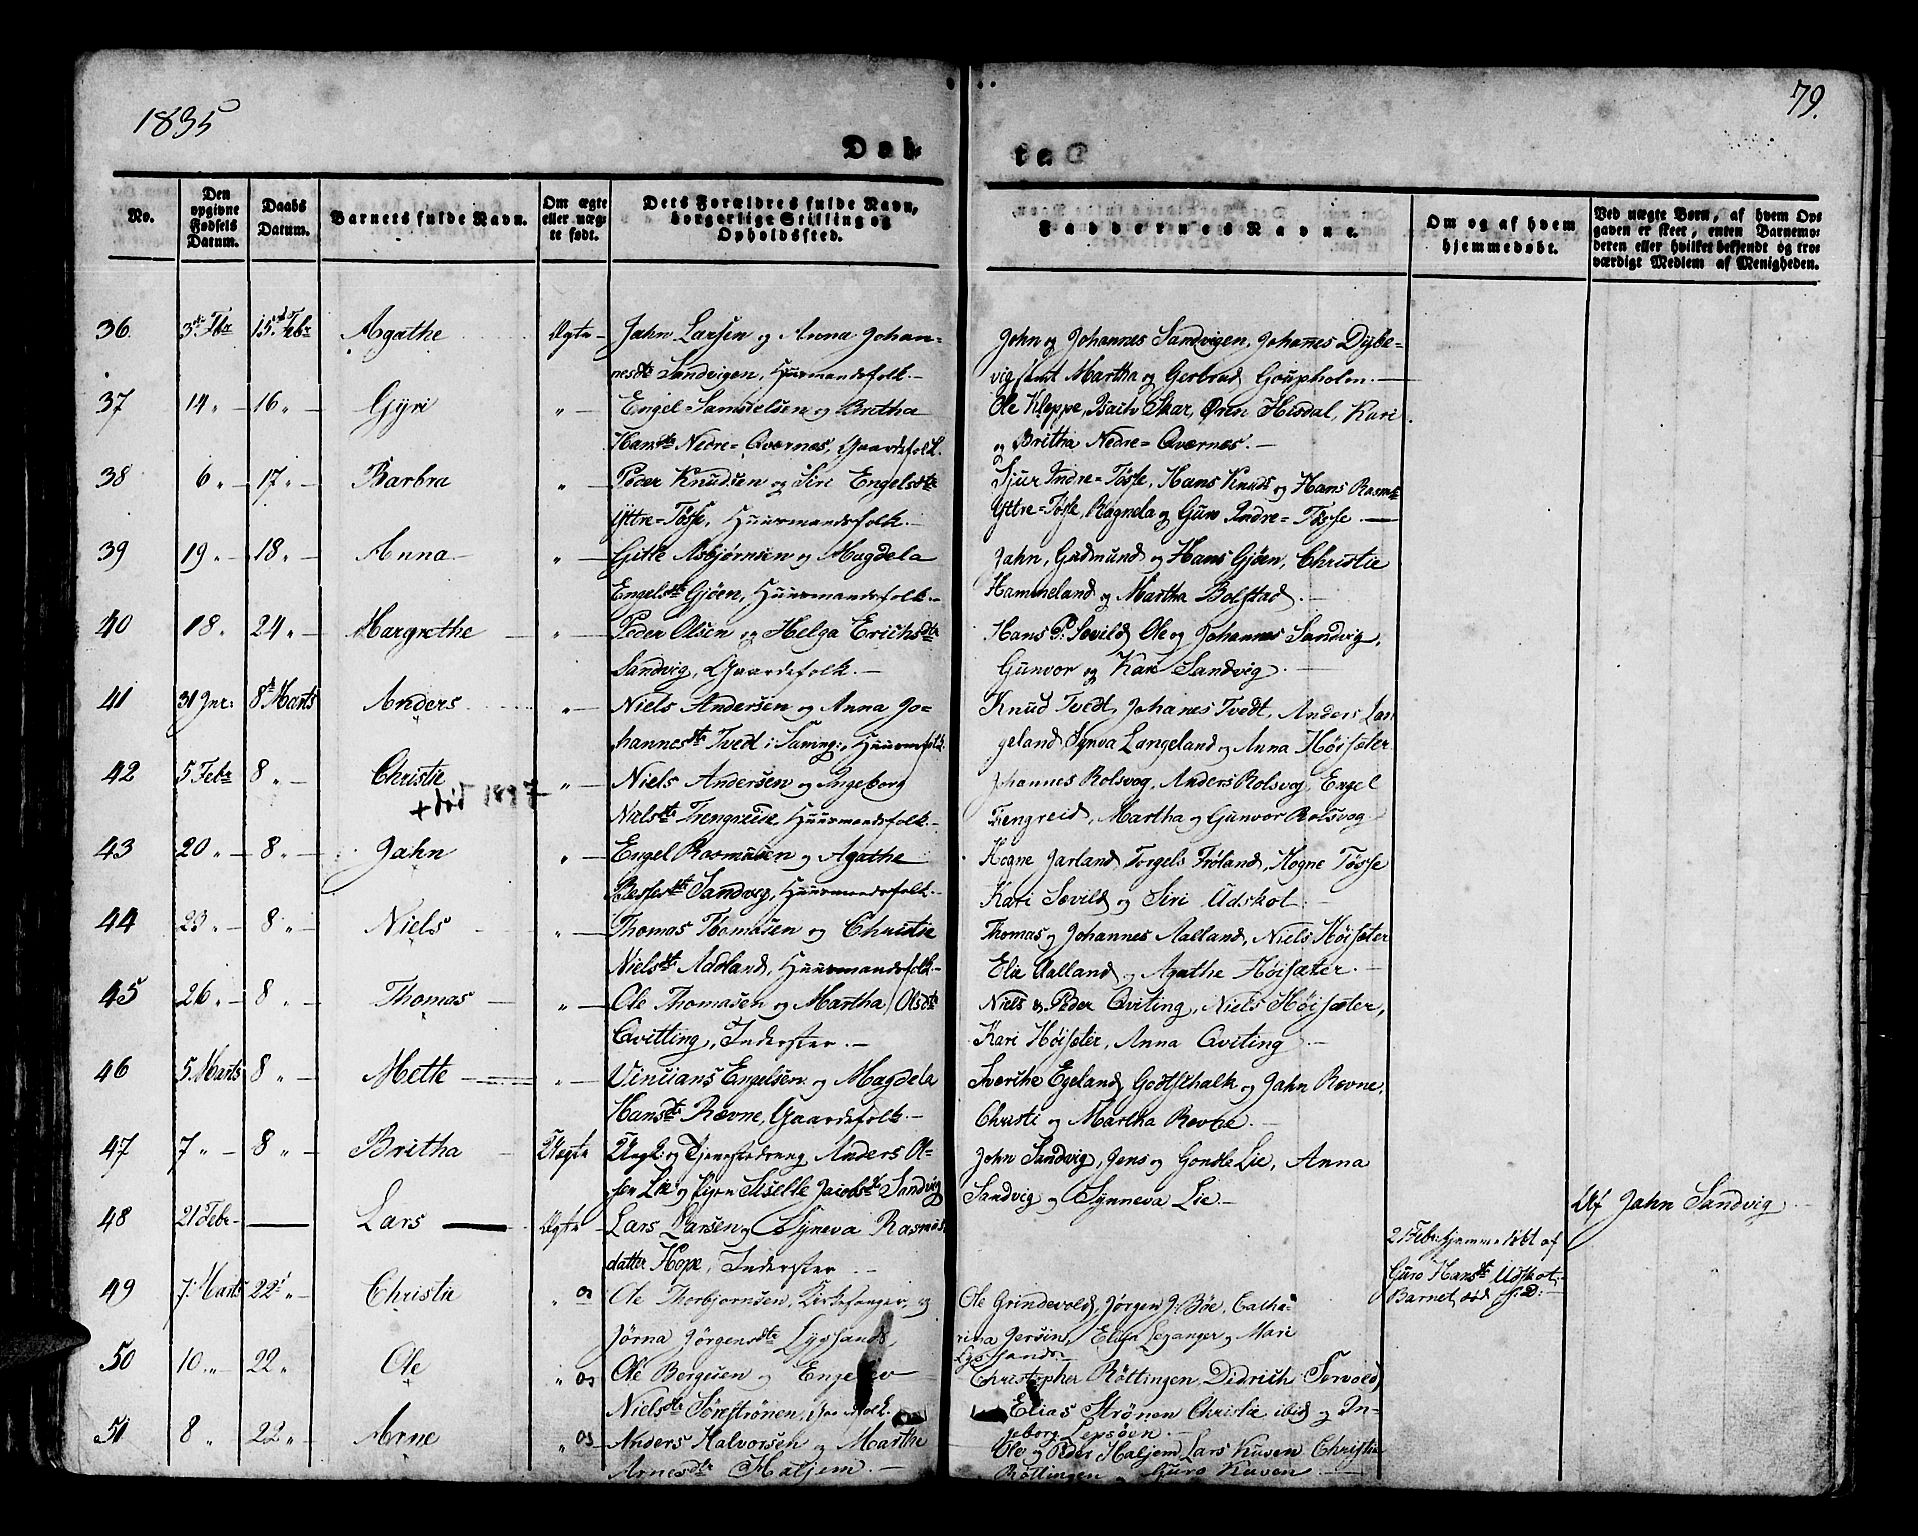 1835
79.
Daab
No.
Den opgivne Fødsels Datum.
Daabs Datum.
Barnets fulde Navn.
Om ægte eller uægte født.
Dets Forældres fulde Navn, borgerlige Stilling og Opholdssted.
Faddernes Navne.
Om og af hvem hjemmedøbt.
Ved uægte Børn, af hvem Opgaven er skeet, enten Barnemoderen eller hvilket bekjendt og troværdigt Medlem af Menigheden.
36. 3de Fbr 15. Febr Agathe Ægte Jahn Larsen og Anna Johan-
nesdtr Sandvigen, Huusmandsfolk.
John og Johannes Sandvigen, Johanes Digbe-
vig samt Martha og Gertrud Goupholm.
37 14 " 16 " Gyri " Engel Samuelsen og Britha
Hansdtr Nedre=Qværnes, Gaardsfolk.
Ole Kleppe, Skar, Hisdal, Kari
og Britha Nedre=Qværnes.
38 6 " 17 " Barbra " Peder Knudsen og Siri Engelsdtr
Yttre=Tøsse, Huusmandsfolk.
Sjur Indre=Tøsse, Hans Knuds og Hans Rasm
Yttre=Tøsse, Ragnela og Guro Indre=Tøsse.
39 19 " 18 " Anna " Gitte Asbjørnsen og Magdela
Engelsdtr Gjøen, Huusmandsfolk.
Jahn, Gudmund og Hans Gjøen, Christie
Hammeland og Martha Bolstad.
40 18 " 24 " Margrethe " Peder Olsen og Helga Erichsdtr
Sandvig, Gaardsfolk.
Hans P. Sævild, Ole og Johannes Sandvig,
Gunvor og Kari Sandvig.
41 31 Jnr: 8de Marts Anders " Niels Andersen og Anna Jo-
hannesdtr Tvedt i Saming:, Huusmfolk
Knud Tvedt, Johanes Tvedt, Anders Lan
geland Synva Langeland og Anna Høisæter
42 5 Febr 8 " Christie " Niels Andersen og Ingeborg
+ död 1897
Nielsdtr Trengereid, Huusmandsfolk.
Johannes Rolsvog, Anders Rolsvog, Engel
Trengreid, Martha og Gunvor Rolsvog
43 20 " 8 " Jahn " Engel Rasmusen og Agathe
Sandvig, Huusmandsfolk.
Hogne Jarland Torgels Frøland, Hogne Tøsse
Kari Sævild og Siri Udskot.
44 23 " 8 " Niels " Thomas Thomasen og Christie
Nielsdtr Aadland, Huusmandsfolk.
Thomas og Johannes Aalland, Niels Høisæter
Eli Aalland og Agathe Høisæter.
45 26 " 8 " Thomas " Ole Thomasen og Martha Olsdtr
Qvitting, Inderster.
Niels & Peder Qviting, Niels Høisæter,
Kari Høisæter, Anna Qviting
46 5 Marts 8 " Mette " Vinsians Engelsen og Magdela
Hansdtr Rævne, Gaardsfolk.
Sverthe Egeland, Godtschalk og Jahn Rævne,
Christi og Martha Rævne.
47 7 " 8 " Britha Uægte Ungk: og Tjenestedreng Anders Ol-
sen Lie og Pigen Siselle Jacobsdtr Sandvig
John Sandvig, Jens og Gondle Lie, Anna
Sandvig og Synneva Lie.
Af Jahn Sandvig
48 21 Febr Lars Ægte Lars Larsen og Synneva Rasmus
datter Hope, Inderster
21 Febr: hjemmedøbt af
Guro Hansdtr Udskot.
Barnet død s: D:
49 7 Marts 22 " Christie " os Ole Thorbjornsen, Kirkesanger, og
Jørna Jørgensdtr Lyssands
Ole Grindevold, Jørgen J: Bøe, Catha-
rina Jersin, Elisa Leganger og Mari
Lyssands
50 10 " 22 " Ole " os Ole Børgesen og Engelev
Nielsdtr Sørestrønen, Gaardsfolk
Christopher Røttingen, Didrich Sørvold,
Elias Strønen Christie ibid og In-
geborg Lepsøen
51 8 " 22 " Arne " os Anders Halvorsen og Marthe
Arnesdtr Haljem.
Ole og Peder Haljem, Lars Kuven Christie
Røttingen og Guro Kuven